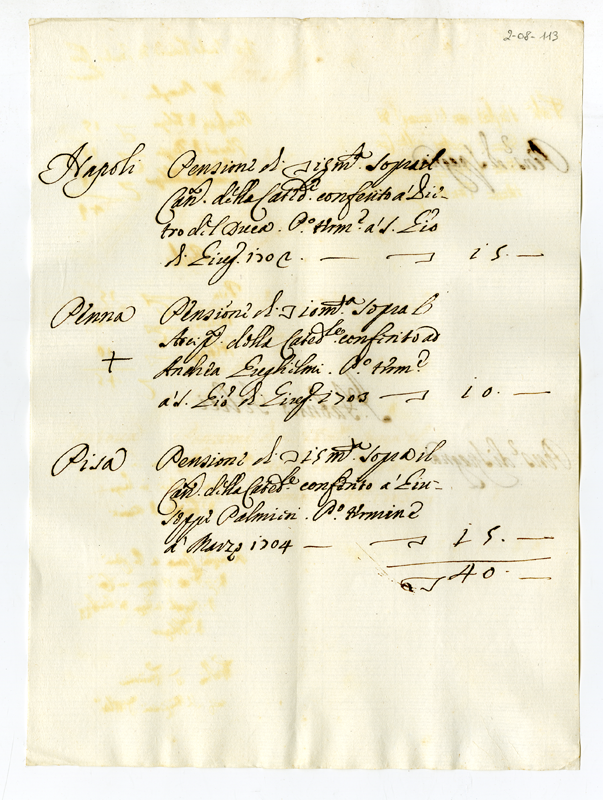 2-08-113
Napoli Pensione di 15 m.ta sopra il
Can.to della Cated.le conferito à Pie-
tro del Duca. P.o term.e à S. Gio
di Giug.o 1702 — 15. —
Penna Pensione di 10 m.ta sopra l'
+ Arcip. della Cated.le conferito ad
Andrea . P.o term.e
à S. Gio. di Giug.o 1703 — 10. —
Pisa Pensione di 15 m.ta sopra il
Can.to della Cated.le conferito à Giu-
seppe Palmieri. P.o termine
à Marzo 1704 — 15. —
40. —